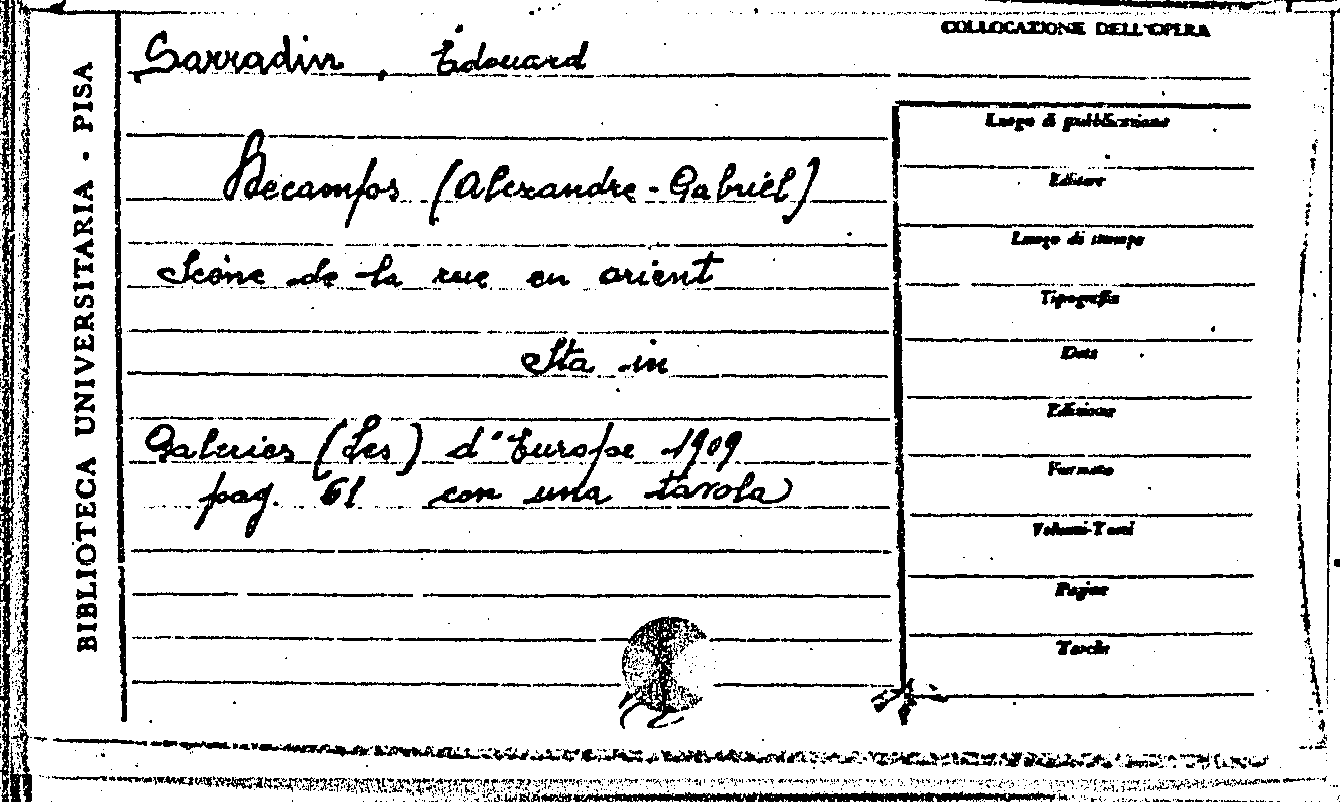 COLLOCAZIONE DELL'OPERA
Sarradin, Édouard
BIBLIOTECA UNIVERSITARIA - PISA
Luogo di pubblicazione
Decamps (Alexandre-Gabriel)
Editore
Luogo di stampa
Scène de la rue en orient
Tipografia
Sta in
Data
Edizione
Galeries (Les) d'Europe 1909
Formato
pag. 61 con una tavola
Volumi-Tomi
Pagine
Tavole